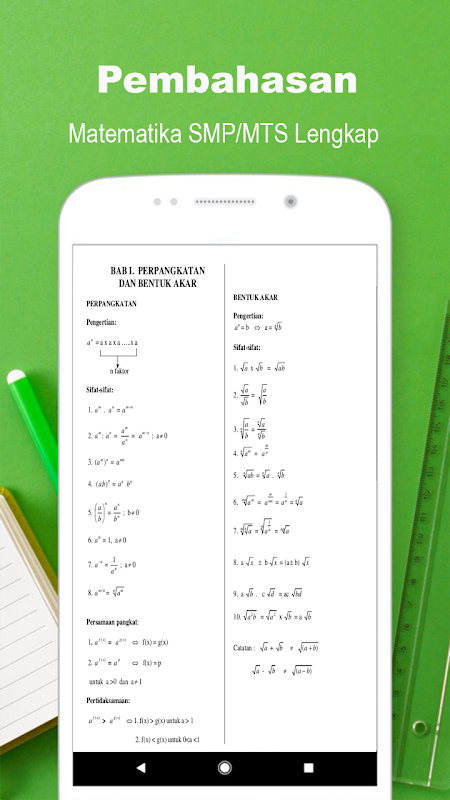 Pembahasan
Matematika SMP/MTS Lengkap
BAB I. PERPANGKATAN
DAN BENTUK AKAR
PERPANGKATAN
Pengertian:
aⁿ = a x a x a ….. x a
n faktor
Sifat-sifat:
1. aᵐ . aⁿ = aᵐ⁺ⁿ
2. aᵐ : aⁿ = aᵐ/aⁿ = aᵐ⁻ⁿ ; a≠0
3. (aᵐ)ⁿ = aᵐⁿ
4. (ab)ⁿ = aⁿ bⁿ
5. (a/b)ⁿ = aⁿ/bⁿ ; b≠0
6. a⁰ = 1, a≠0
7. a⁻ⁿ = 1/aⁿ ; a≠0
8. aᵐ/ⁿ = ⁿ√aᵐ
Persamaan pangkat:
1. a^f(x) = a^g(x) ⇔ f(x) = g(x)
2. a^f(x) = a^p ⇔ f(x) = p
untuk a >0 dan a ≠ 1
Pertidaksamaan:
a^f(x) > a^g(x) ⇔ 1. f(x) > g(x) untuk a > 1
2. f(x) < g(x) untuk 0<a <1
BENTUK AKAR
Pengertian:
aⁿ = b ⇔ a = ⁿ√b
Sifat-sifat:
1. √a x √b = √ab
2. √a/√b = √(a/b)
3. ⁿ√(a/b) = ⁿ√a/ⁿ√b
4. ⁿ√aᵐ = a^(m/n)
5. ⁿ√ab = ⁿ√a . ⁿ√b
8. a√x ± b√x = (a± b)√x
9. a√b . c√d = ac√bd
10. √a²b = √a² x √b = a√b
Catatan : √a + √b ≠ √(a + b)
√a - √b ≠ √(a − b)